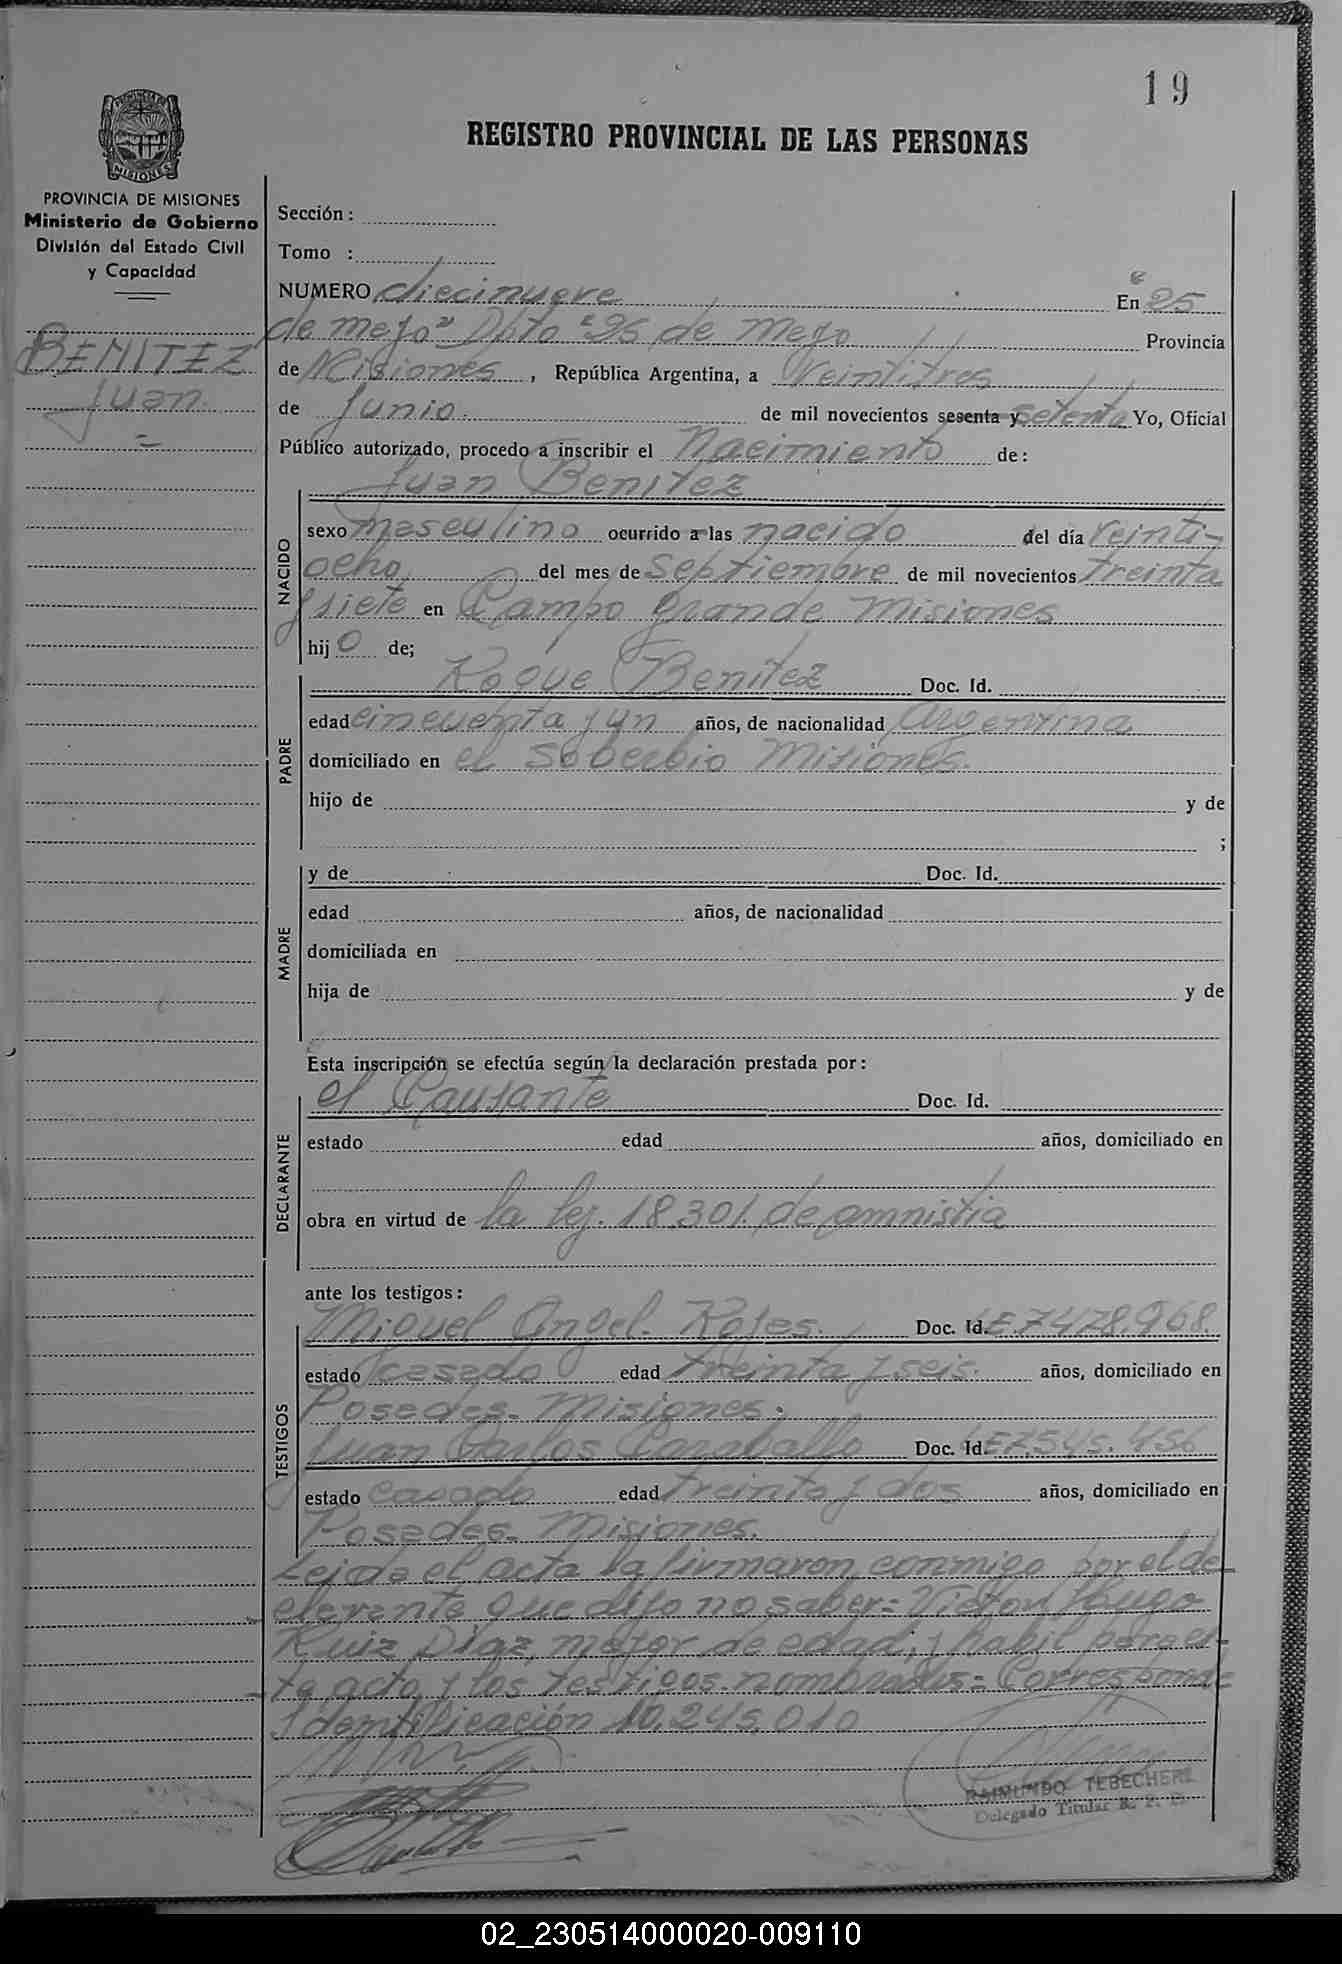 19
REGISTRO PROVINCIAL DE LAS PERSONAS
PROVINCIA DE MISIONES
MISIONES
PROVINCIA DE MISIONES
Ministerio de Gobierno
División del Estado Civil
y Capacidad
BENITEZ
Juan.
Sección:
Tomo :
NUMERO diecinueve En "25
de mayo" Dpto "25 de mayo Provincia
de Misiones , República Argentina, a Veintitres
de Junio. de mil novecientos sesenta y setenta Yo, Oficial
Público autorizado, procedo a inscribir el Nacimiento de:
Juan Benitez
NACIDO
sexo masculino ocurrido a las nacido del día veinti-
ocho del mes de septiembre de mil novecientos treinta
y siete en Campo Grande Misiones
hijo de;
PADRE
Roque Benitez Doc. Id.
edad cincuenta y un años, de nacionalidad Argentina
domiciliado en el Soberbio Misiones.
hijo de y de
;
MADRE
y de Doc. Id.
edad años, de nacionalidad
domiciliada en
hija de y de
Esta inscripción se efectúa según la declaración prestada por:
DECLARANTE
el Causante Doc. Id.
estado edad años, domiciliado en
obra en virtud de la ley. 18.301. de amnistia
ante los testigos:
TESTIGOS
Miguel Angel. Rojas. Doc. Id. LE 7478.968.
estado casado edad treinta y seis. años, domiciliado en
Posadas. Misiones.
Juan Carlos Caraballo Doc. Id. LE 7.545.456
estado casado edad treinta y dos años, domiciliado en
Posadas. Misiones.
Leida el acta la firmaron conmigo por el de
clarante que dijo no saber= Victor Hugo
Ruiz Diaz, mayor de edad; y habil para es-
ta acto y los testigos nombrados= Corresponde
Identificación 10.245.010
RAIMUNDO TEBECHERI
Delegado Titular R. P. P.
02_230514000020-009110